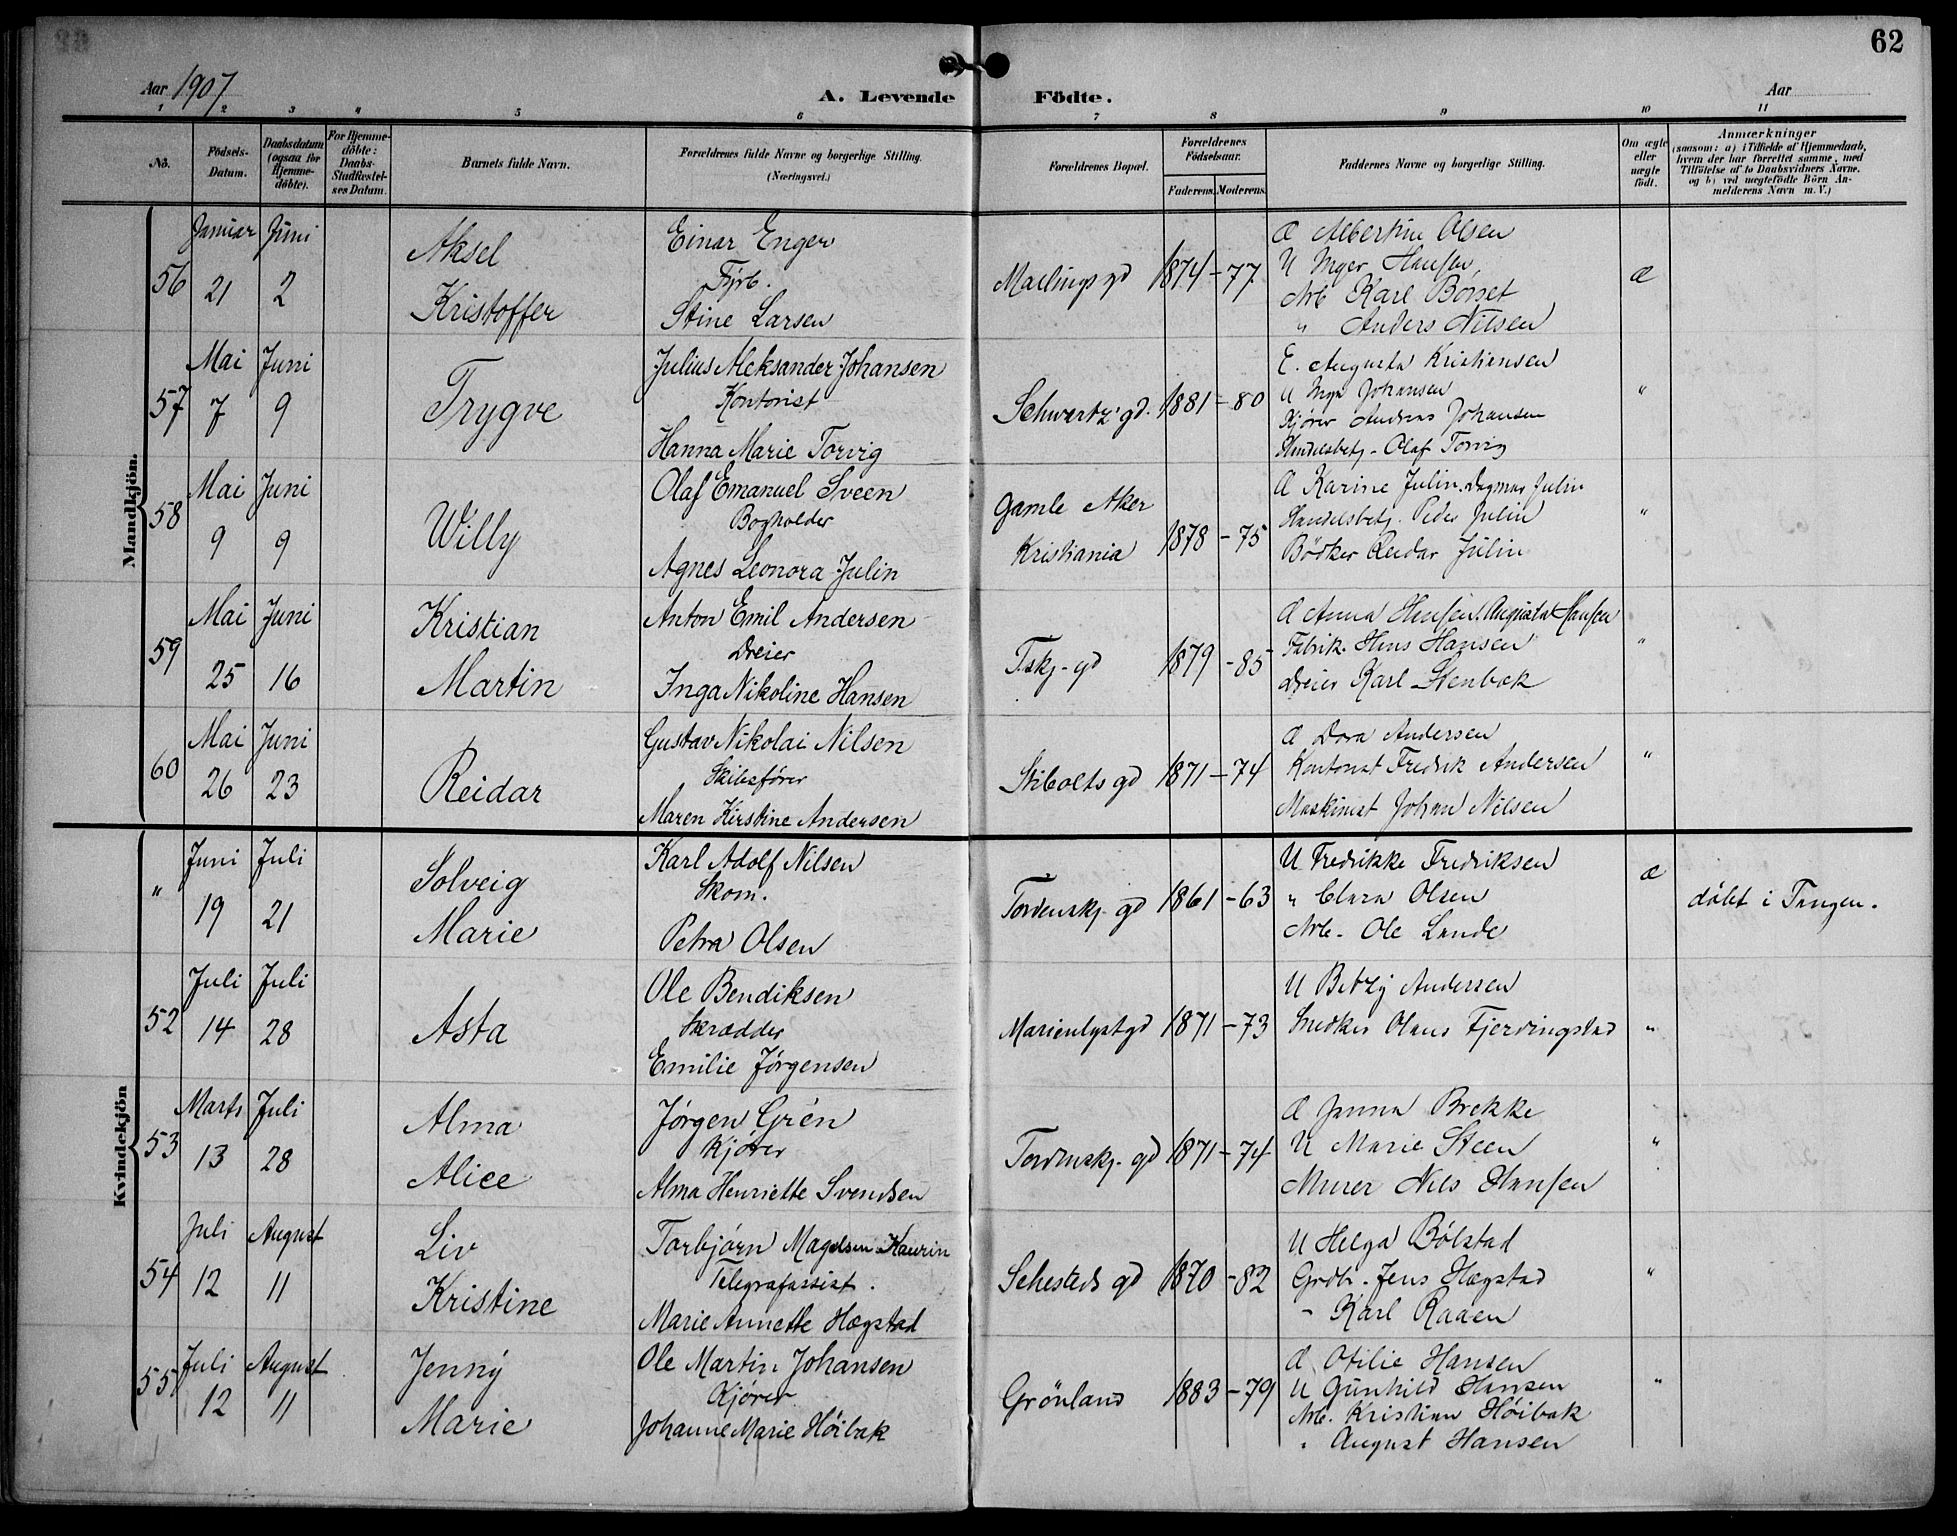 62
Aar 1907
A. Levende Födte.
Aar
1 2 3 4 5 6 7 8 9 10 11
No.
Födsels-Datum.
Daabsdatum (ogsaa for Hjemmedöbte).
For Hjemmedöbte: Daabs-Stadfæstelses Datum.
Barnets fulde Navn.
Forældrenes fulde Navne og borgerlige Stilling. (Næringsvei.)
Forældrenes Bopæl.
Forældrenes Födselsaar.
Faderens. Moderens.
Faddernes Navne og borgerlige Stilling.
Om ægte eller uægte födt.
Anmærkninger
(saasom: a) i Tilfælde af Hjemmedaab, hvem der har forrettet samme, med Tilföielse af to Daabsvidners Navne, og b) ved uægtefödte Börn Anmelderens Navn m. V.)
Mandkjön.
56
Januar 21
Juni 2
Aksel
Kristoffer
Einar Enger
Fyrb.
Stine Larsen
Mallings gd
1874 - 77
Æ Albertine Olsen
U Inger Hansen
Arb Karl Borset
" Anders Nilsen
Æ
57
Mai 7
Juni 9
Trygve
Julius Aleksander Johansen
Kontorist
Hanna Marie Torvig
Schwartz' gd.
1881 - 80
E. Augusta Kristiansen
U Inga Johansen
Kjører Andreas Johansen
Handelsbetj - Olaf Torvig
"
58
Mai 9
Juni 9
Willy
Olaf Emanuel Sveen
Bogholder
Agnes Leonora Julin
Gamle Aker
Kristiania
1878 - 75
Æ Karine Julin. Dagmar Julin
Handelsbetj. Peder Julin
Bödker Reidar Julin
"
59
Mai 25
Juni 16
Kristian
Martin
Anton Emil Andersen
Dreier
Inga Nikoline Hansen
Tskj- gd
1879 - 85
Æ Anna Hansen. Augusta Hansen
Fabrik. Hans Hansen
Dreier Karl Stenbak
"
60
Mai 26
Juni 23
Reidar
Gustav Nikolai Nilsen
Skibsfører
Maren Kirstine Andersen
Stibolts gd
1871 - 74
Æ Dora Andersen
Kontorist Fredrik Andersen
Maskinist Johan Nilsen
"
Kvindekjön
"
Juni 19
Juli 21
Solveig
Marie
Karl Adolf Nilsen
Skom.
Petra Olsen
Tordenskj- gd
1861 - 63
U Fredrikke Fredriksen
" Clara Olsen
Arb- Ole Lande
Æ
døbt i Tangen.
52
Juli 14
Juli 28
Asta
Ole Bendiksen
Skrædder
Emilie Jørgensen
Marienlyst gd
1871 - 73
U Betzy Andersen
Snedker Olaus Fjerdingstad
"
53
Marts 13
Juli 28
Alma
Alice
Jørgen Grén
Kjører
Alma Henriette Svendsen
Tordenskj- gd
1871 - 74
Æ Janna Brekke
U Marie Steen
Murer Nils Hansen
"
54
Juli 12
August 11
Liv
Kristine
Torbjørn Magelsen Kaurin
Telegrafassist.
Marie Annette Hægstad
Sehesteds gd
1870 - 82
U Helga Bølstad
Grdbr. Jens Hægstad
- Karl Raaen
"
55
Juli 12
August 11
Jenny
Marie
Ole Martin Johansen
Kjører
Johanne Marie Höibak
Grönland
1883 - 79
Æ Otilie Hansen
U Gunhild Hansen
Arb. Kristian Höibak
" August Hansen
"